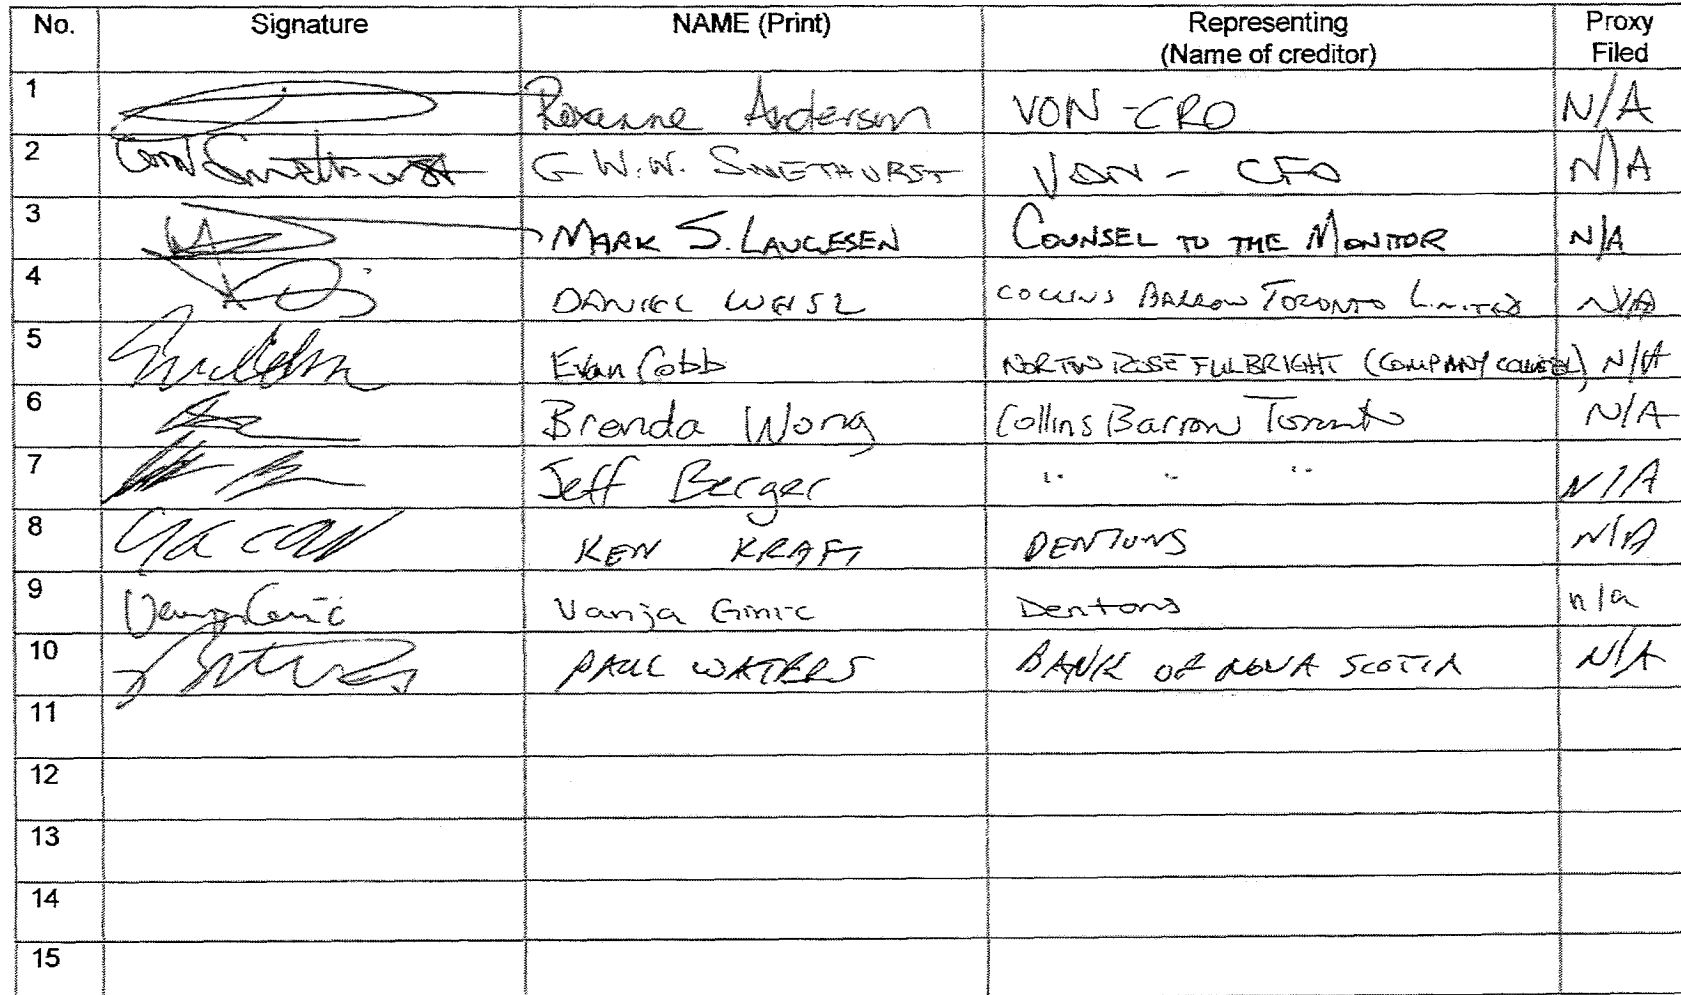 No. Signature NAME (Print) Representing Proxy
(Name of creditor) Filed
1 Roxanne Anderson VON - CRO N/A
2 G W.W. SMETHURST VON - CFO N/A
3 MARK S. LAUGESEN COUNSEL TO THE MONITOR N/A
4 DANIEL WEISZ COLLINS BARROW TORONTO LIMITED N/A
5 Evan Cobb NORTON ROSE FULBRIGHT (COMPANY COUNSEL) N/A
6 Brenda Wong Collins Barrow Toronto N/A
7 Jeff Berger " " " N/A
8 KEN KRAFT DENTONS N/A
9 Vanja Ginic Dentons n/a
10 PAUL WATERS BANK OF NOVA SCOTIA N/A
11
12
13
14
15